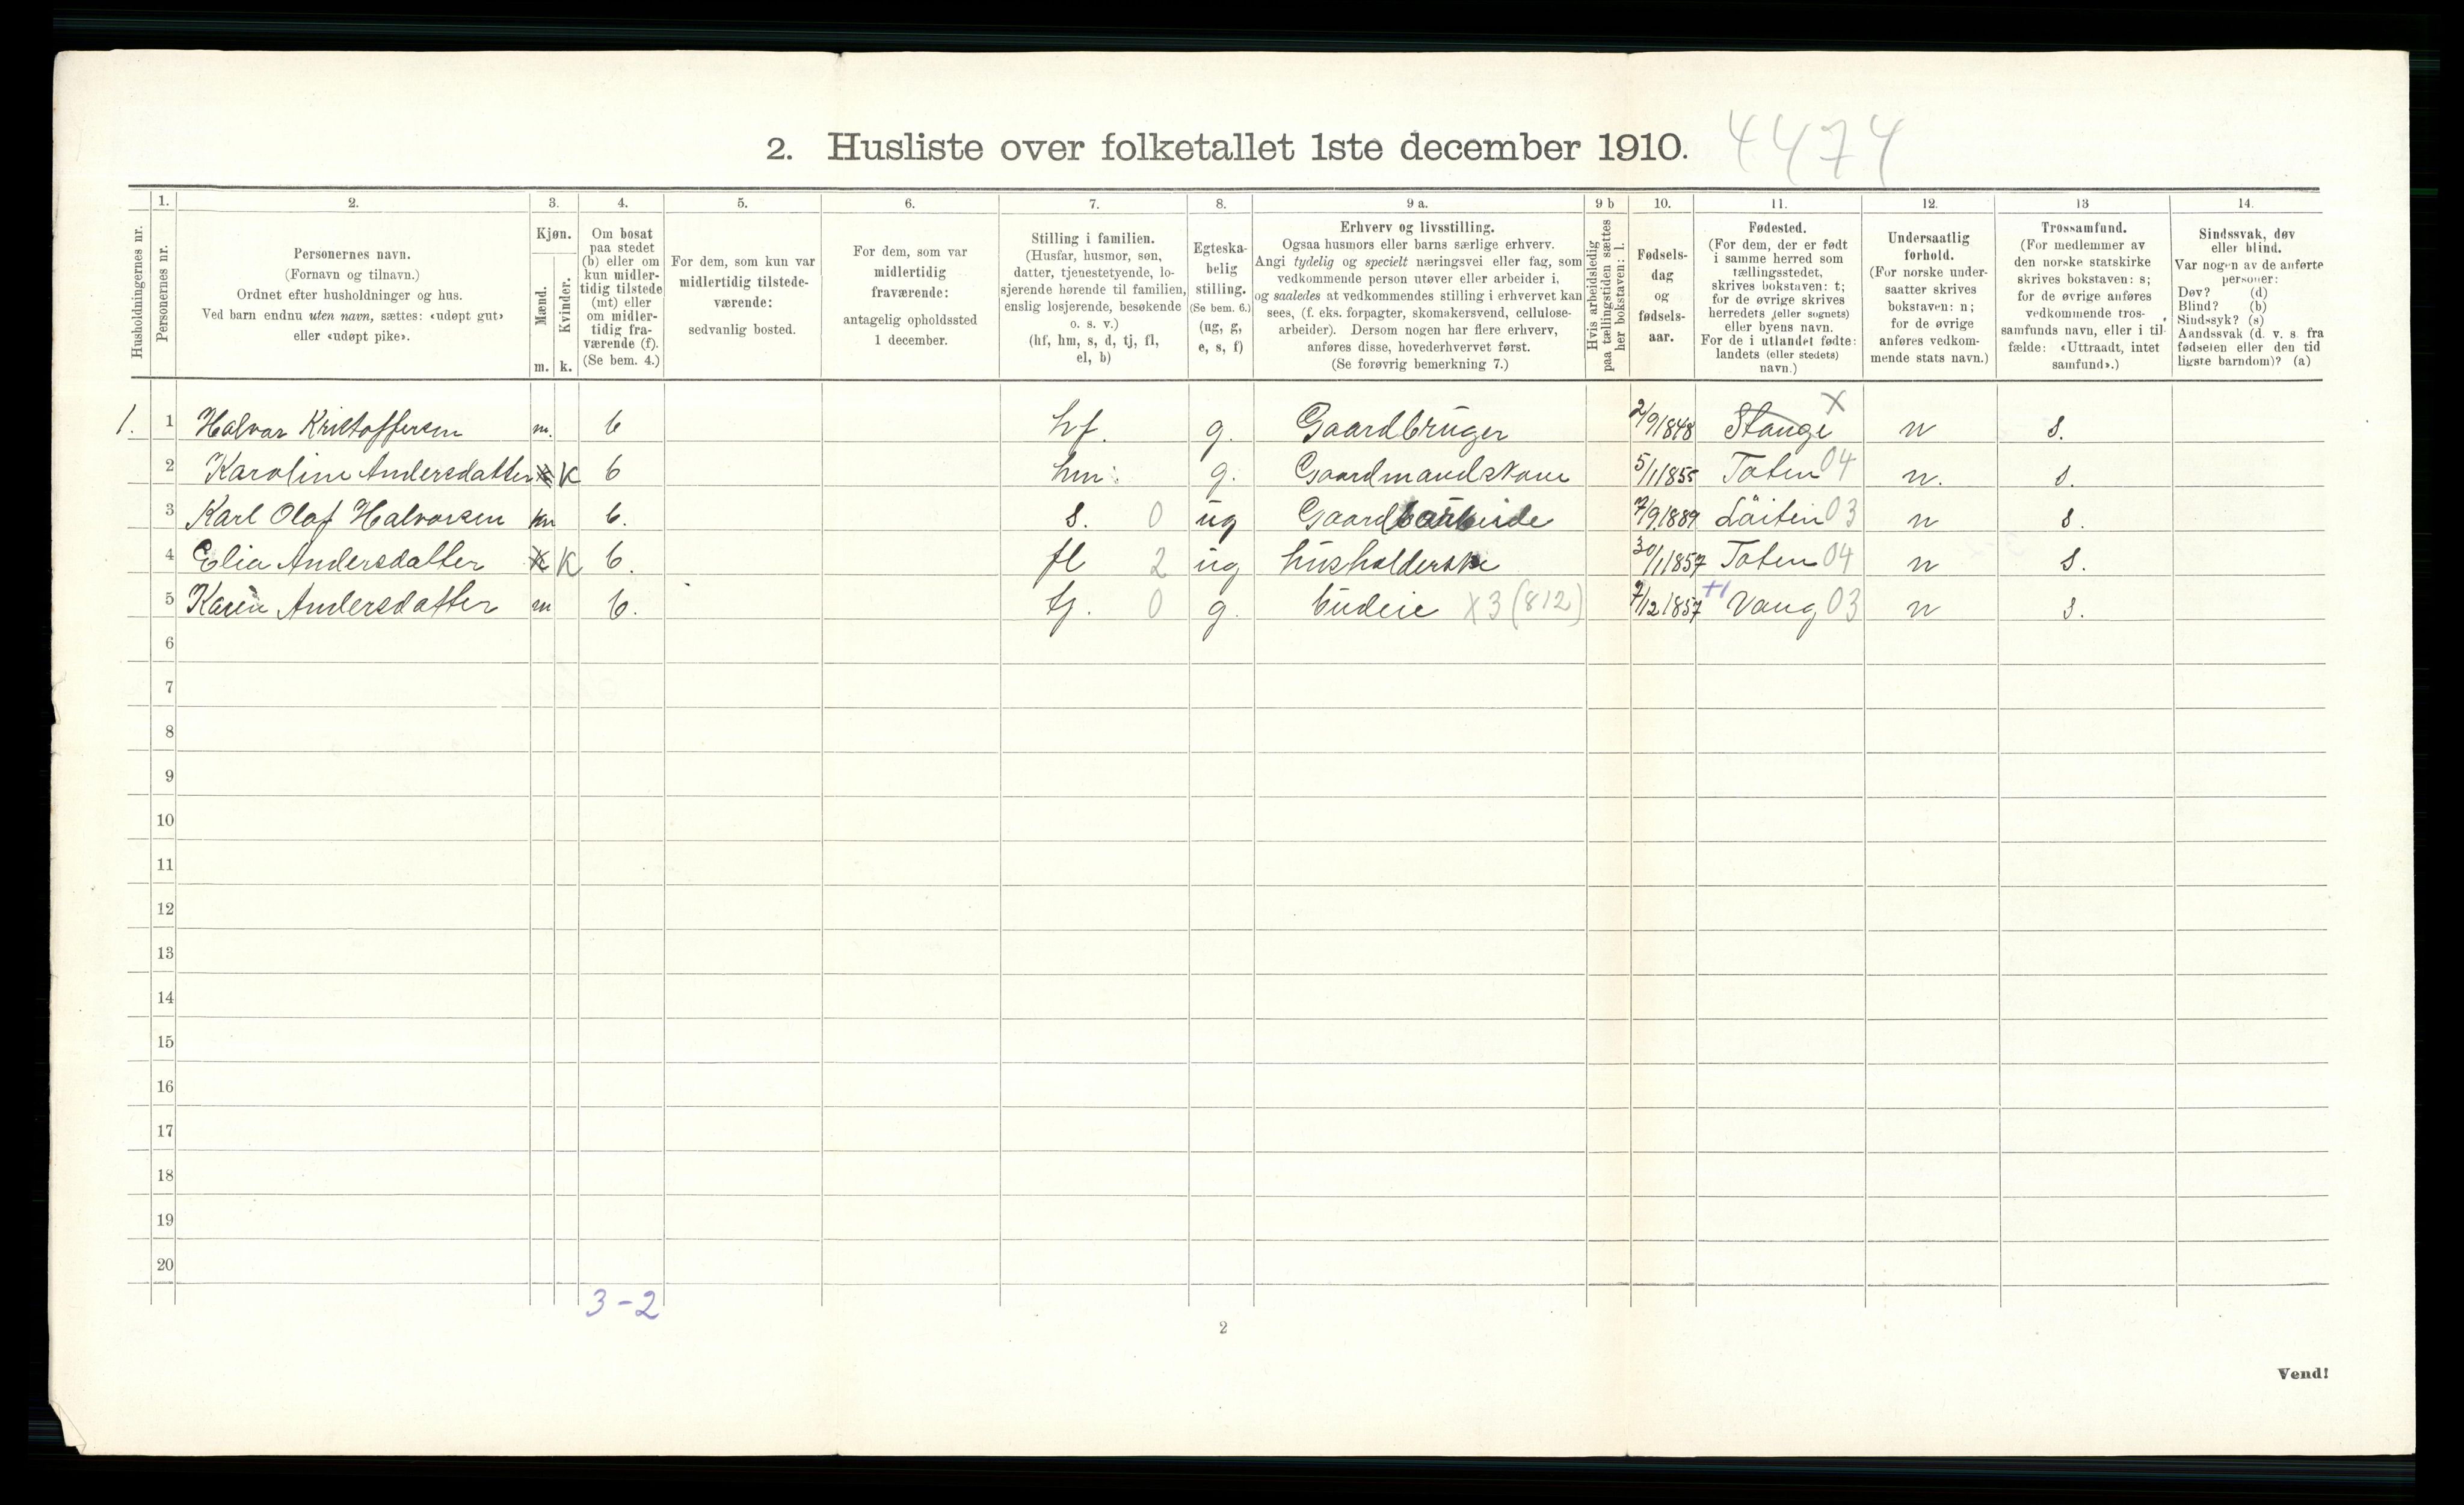 2. Husliste over folketallet 1ste december 1910. 4474
1. 2. 3. 4. 5. 6. 7. 8. 9 a. 9 b 10. 11. 12. 13 14.
Husholdningernes nr.
Personernes nr.
Personernes navn.
(Fornavn og tilnavn.)
Ordnet efter husholdninger og hus.
Ved barn endnu uten navn, sættes: «udøpt gut»
eller «udøpt pike».
Kjøn.
Mænd.
Kvinder.
m. k.
Om bosat
paa stedet
(b) eller om
kun midler-
tidig tilstede
(mt) eller
om midler-
tidig fra-
værende (f).
(Se bem. 4.)
For dem, som kun var
midlertidig tilstede-
værende:
sedvanlig bosted.
For dem, som var
midlertidig
fraværende:
antagelig opholdssted
1 december.
Stilling i familien.
(Husfar, husmor, søn,
datter, tjenestetyende, lo-
sjerende hørende til familien,
enslig losjerende, besøkende
o. s. v.)
(hf, hm, s, d, tj, fl,
el, b)
Egteska-
belig
stilling.
(Se bem. 6.)
(ug, g,
e, s, f)
Erhverv og livsstilling.
Ogsaa husmors eller barns særlige erhverv.
Angi tydelig og specielt næringsvei eller fag, som
vedkommende person utøver eller arbeider i,
og saaledes at vedkommendes stilling i erhvervet kan
sees, (f. eks. forpagter, skomakersvend, cellulose-
arbeider). Dersom nogen har flere erhverv,
anføres disse, hovederhvervet først.
(Se forøvrig bemerkning 7.)
Hvis arbeidsledig
paa tællingstiden sættes
her bokstaven: l.
Fødsels-
dag
og
fødsels-
aar.
Fødested.
(For dem, der er født
i samme herred som
tællingsstedet,
skrives bokstaven: t;
for de øvrige skrives
herredets (eller sognets)
eller byens navn.
For de i utlandet fødte:
landets (eller stedets)
navn.)
Undersaatlig
forhold.
(For norske under-
saatter skrives
bokstaven: n;
for de øvrige
anføres vedkom-
mende stats navn.)
Trossamfund.
(For medlemmer av
den norske statskirke
skrives bokstaven: s;
for de øvrige anføres
vedkommende tros-
samfunds navn, eller i til-
fælde: «Uttraadt, intet
samfund».)
Sindssvak, døv
eller blind.
Var nogen av de anførte
personer:
Døv? (d)
Blind? (b)
Sindssyk? (s)
Aandssvak (d. v. s. fra
fødselen eller den tid
ligste barndom)? (a)
1. 1 Halvar Kristoffersen m. b hf. g. Gaardbruger 2/9 1848 Stange X n s.
2 Karoline Andersdatter k b hm. g. Gaardmandskone 5/1 1855 Toten 04 n. s.
3 Karl Olaf Halvorsen m b. s. 0 ug Gaardarbeide 7/9 1889 Löiten 03 n s.
4 Elia Andersdatter k b. fl 2 ug husholderske 30/1 1857 Toten 04 n s.
5 Karen Andersdatter m b. tj. 0 g. budeie X3 (812) 7/12 1857 +1 Vang 03 n s.
6
7
8
9
10
11
12
13
14
15
16
17
18
19
20
3-2
2
Vend!